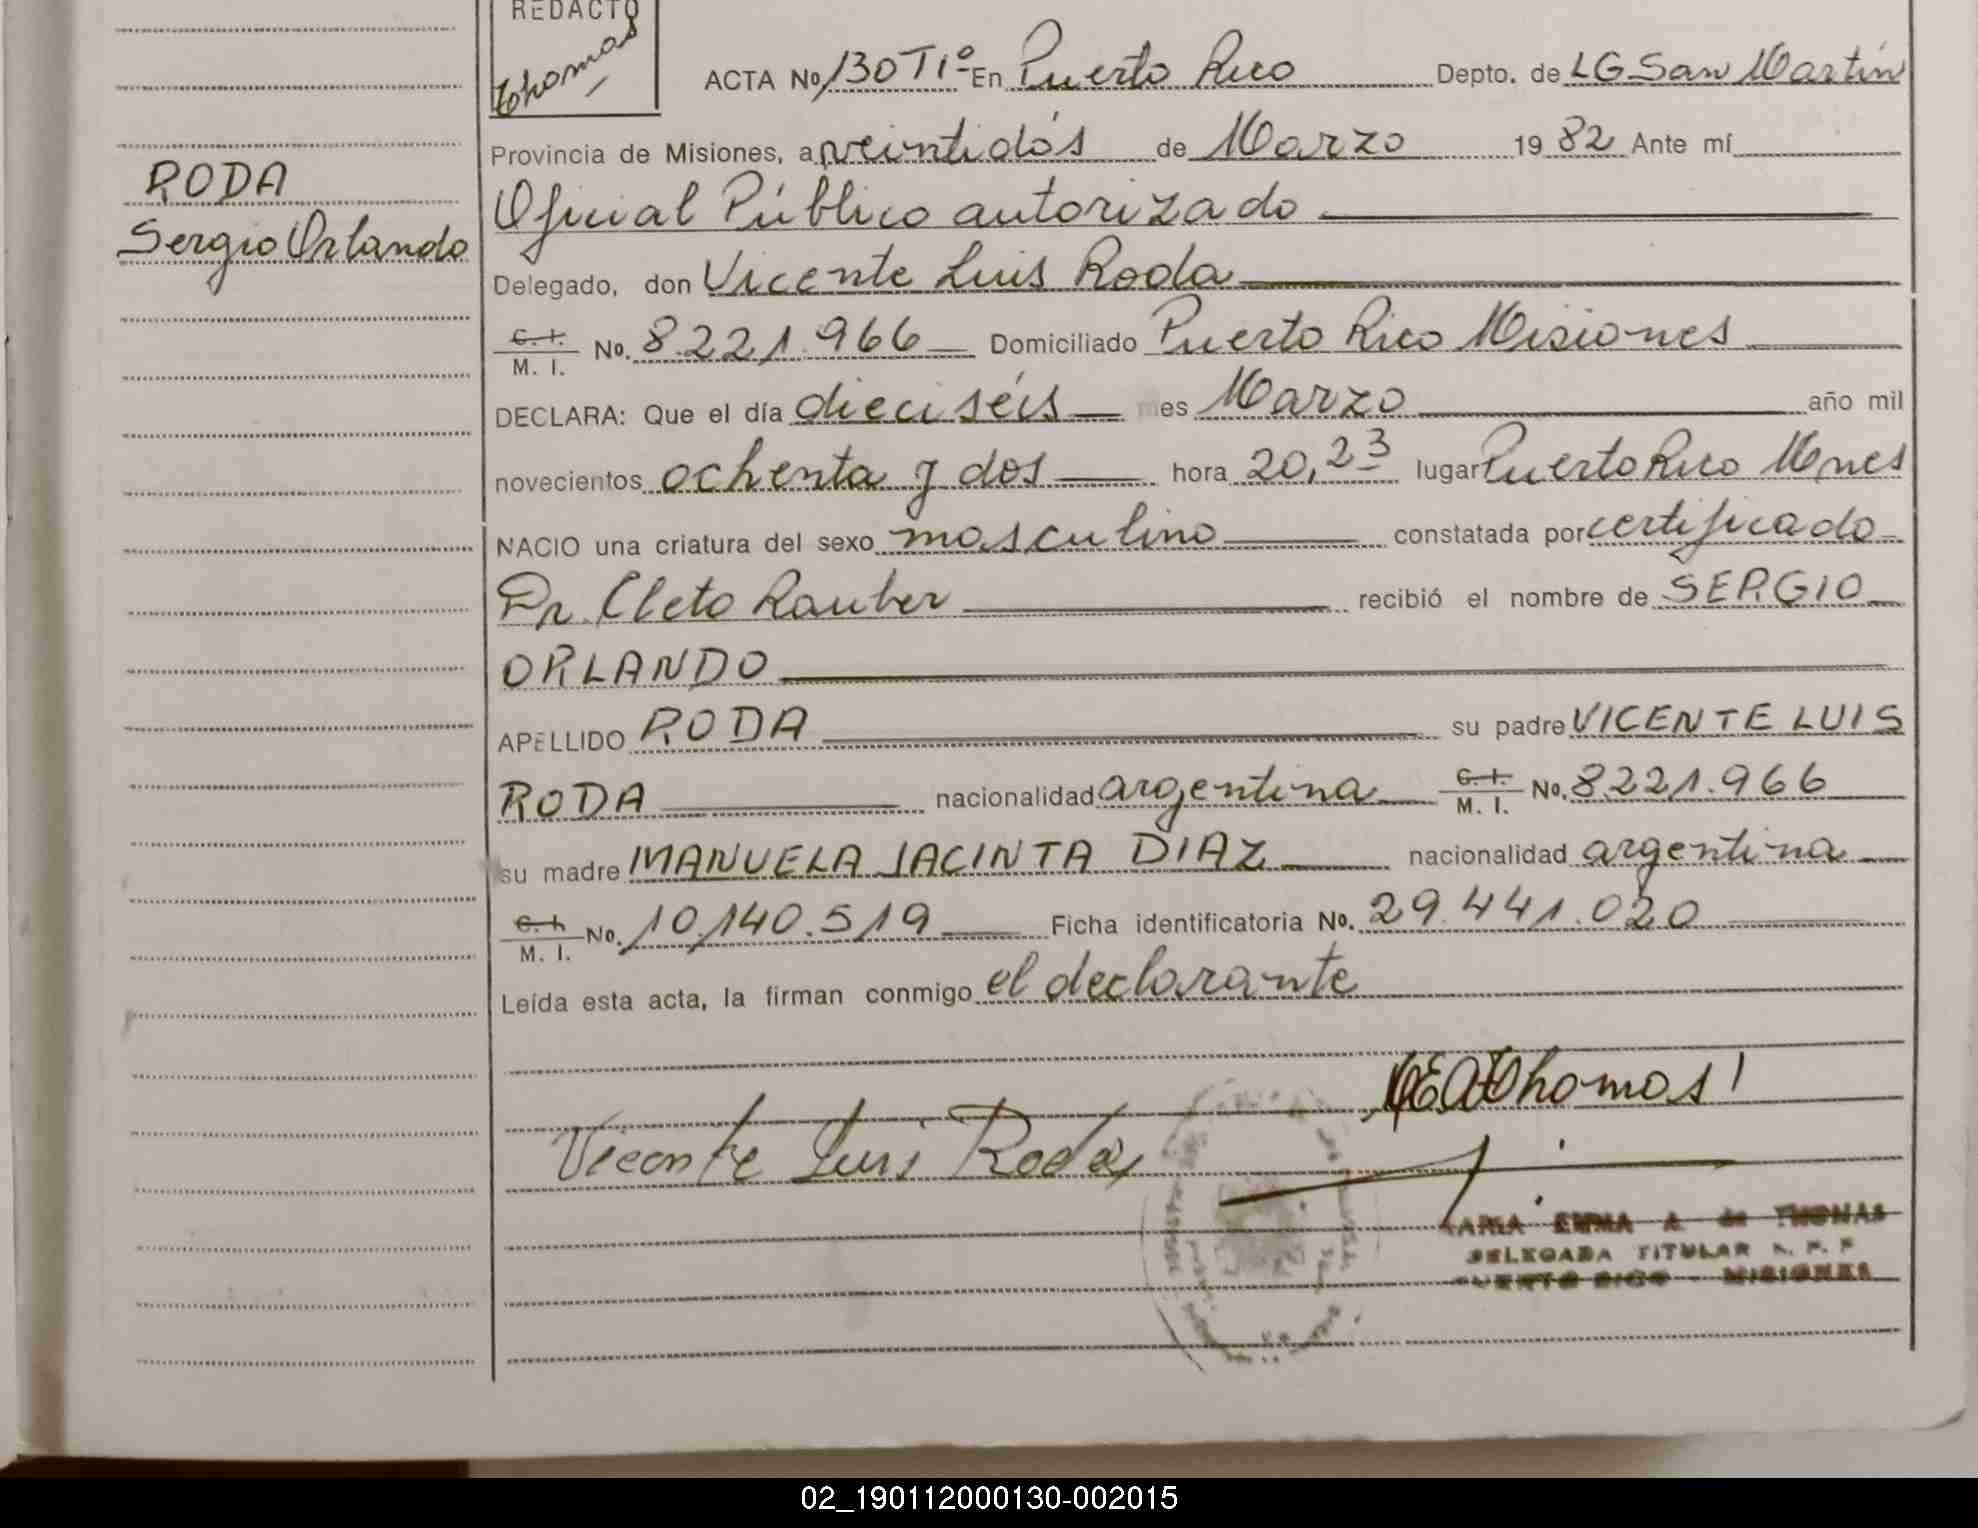 REDACTO
Thomas
ACTA No 130 T1º En Puerto Rico Depto. de LG San Martín
Provincia de Misiones, a veintidós de Marzo 1982 Ante mí
Oficial Público autorizado
RODA
Sergio Orlando
Delegado, don Vicente Luis Roda
C. I. M. I. No. 8.221.966 Domiciliado Puerto Rico Misiones
DECLARA: Que el día dieciséis mes Marzo año mil
novecientos ochenta y dos hora 20,23 lugar Puerto Rico Mnes
NACIO una criatura del sexo masculino constatada por certificado
Dr. Cleto Rauber recibió el nombre de SERGIO
ORLANDO
APELLIDO RODA su padre VICENTE LUIS
RODA nacionalidad argentina C. I. M. I. No. 8.221.966
su madre MANUELA JACINTA DIAZ nacionalidad argentina
C. I. M. I. No. 10.140.519 Ficha identificatoria No. 29.441.020
Leída esta acta, la firman conmigo el declarante
Thomas
Vicente Luis Roda
MARIA EMMA A. de THOMAS
DELEGADA TITULAR R. P. P
PUERTO RICO - MISIONES
02_190112000130-002015